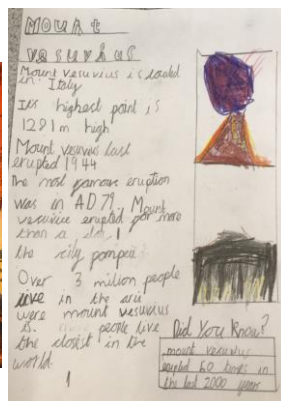 Mount
vesuvius
Mount vesuvius is located
in Italy
Its highest point is
1281m high
Mount vesuvius last
erupted 1944
The most famous eruption
was in AD79, Mount
vesuvius erupted for more
than a day!
the city pompeii
Over 3 million people
live in the are
were mount vesuvius
is. people live
the closist in the
world.
1
Did You Know?
mount vesuvius
erupted 50 times in
the last 2000 years